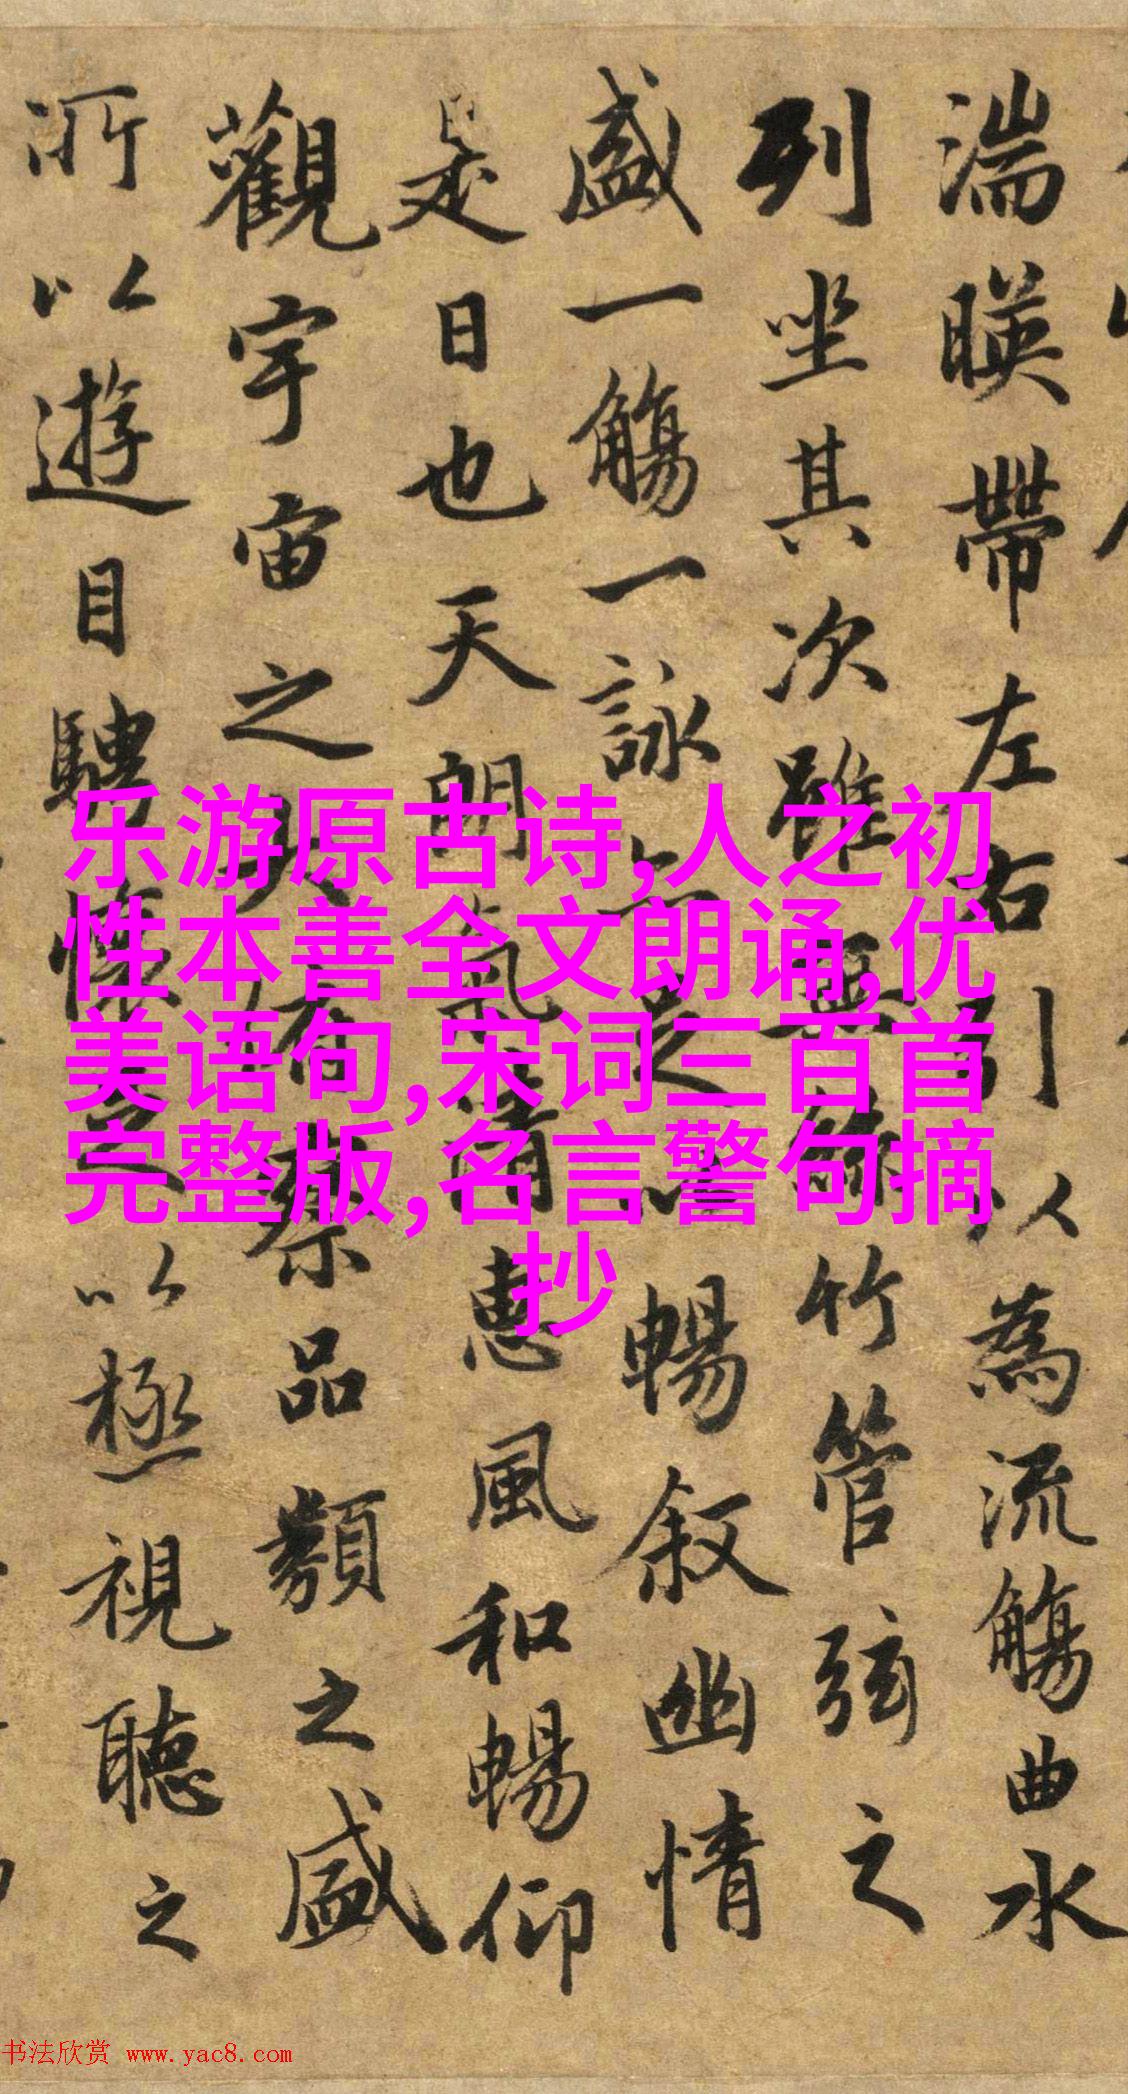 湍暎帶左右引以為流觴曲水
列坐其次雖無絲竹管弦之
盛一觴一詠亦足以暢叙幽情
是日也天朗氣清惠風和暢仰
觀宇宙之大俯察品類之盛
所以遊目騁懷足以極視聽之
乐游原古诗,人之初
性本善全文朗诵,优
美语句,宋词三百首
完整版,名言警句摘
抄
书法欣赏 www.yac8.com